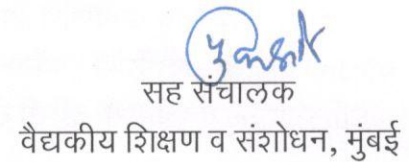 सह संचालक
वैद्यकीय शिक्षण व संशोधन, मुंबई